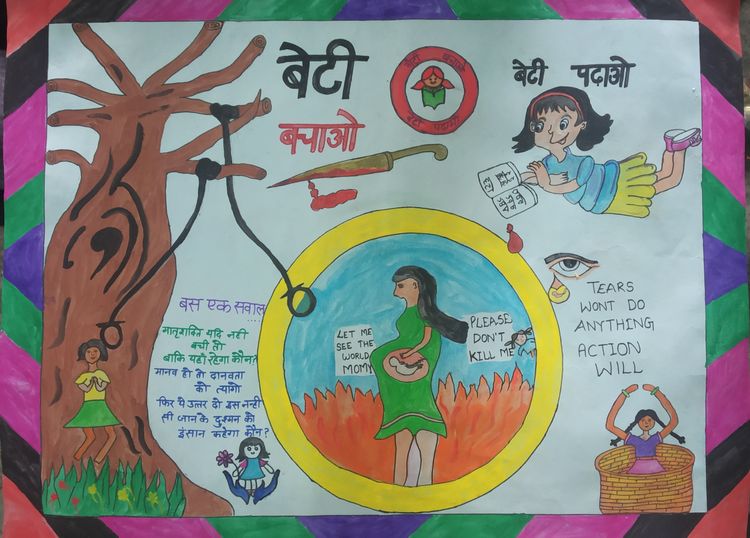 बेटी
बचाओ
बेटी बचाओ
बेटी पढाओ
बेटी पढाओ
बस एक सवाल....
मातृशक्ति यदि नही
बची तो
बाकि यहाँ रहेगा कौन?
मानव हो तो दानवता
को त्यागो
फिर ये उत्तर दो इस नन्ही
सी जान के दुश्मन को
इंसान कहेगा कौन?
LET ME
SEE THE
WORLD
MOMY
PLEASE
DON'T
KILL ME
TEARS
WONT DO
ANYTHING
ACTION
WILL